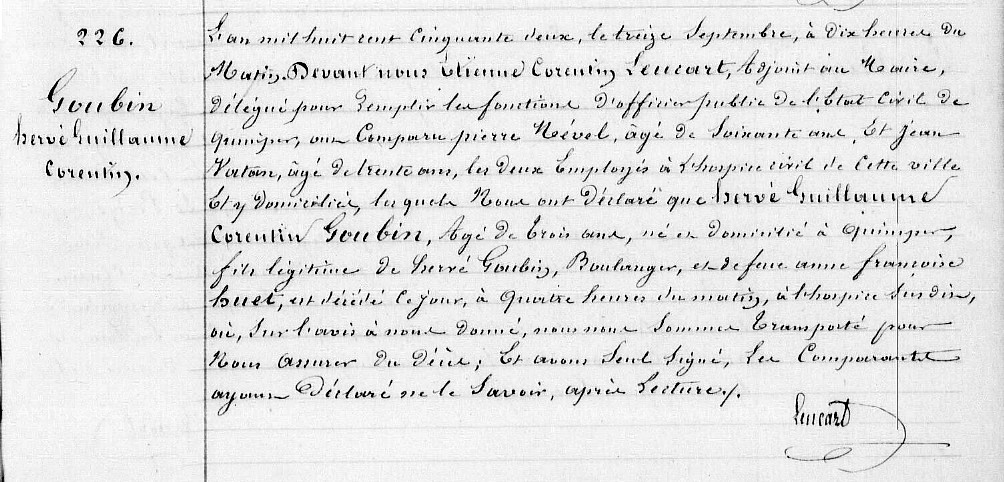 226.
Goubin
hervé Guillaume
Corentin.
L'an mil huit cent Cinquante deux, le treize Septembre, à dix heures du
Matin. Devant nous Etienne Corentin Leucart, Adjoint au Maire,
délégué pour remplir les fonctions d'officier public de l'Etat Civil de
quimper, ont Comparu pierre Névol, âgé de Soixante ans, Et Jean
âgé de trente ans, les deux Employés à l'hospice civil de Cette ville
Et y domiciliés, lesquels Nous ont Déclaré que hervé Guillaume
Corentin Goubin, Agé de Trois ans, né et domicilié à Quimper,
fils légitime de hervé Goubin, Boulanger, et de feue anne françoise
huet, est décédé Ce jour, à Quatre heures du matin, à l'hospice Sus dit,
où, Sur l'avis à nous donné, nous nous Sommes Transporté pour
Nous assurer du décès; Et avons Seul Signé, Les Comparants
ayant Déclaré ne le Savoir, après Lecture/.
Leucart